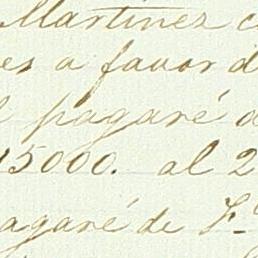 Martinez c
es a favor d
l pagaré a
15000. al 2
agaré de F.